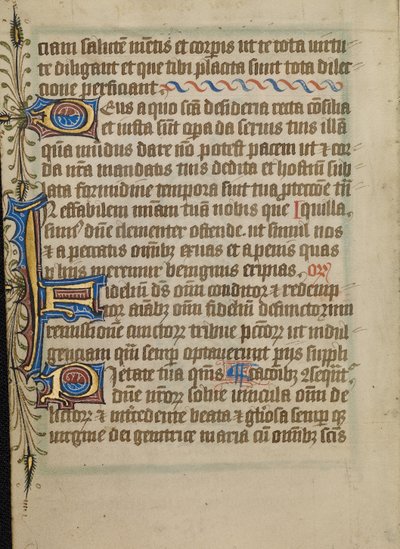 ciam salutē mētis et corpis ut te tota virtu
te diligant et que tibi placita sunt tota dilec
cione perficiant.
Deus a quo scā desideria recta cōsilia
et iusta sūt opa da seruis tuis illā
quā mūdus dare nō potest pacem ut ⁊ cor
da nrā mandatis tuis dedita et hostiū sub
lata formidine tempora sint tua ꝓtecoē trā
Ineffabilem miām tuā nobis que
sumus dūe clementer ostende. ut simul nos
⁊ a peccatis omībꝫ exuas et a penis quas
ꝓ hiis meremur benignus eripias. Or̄o
Fidelium ds̄ omī conditor ⁊ redemp
tor aīabꝫ omī fidelium defunctorum
remissionē cunctorꝝ tribue pctōrꝫ ut indul
genciam quā semper optauerunt piis suppli
Pietate tua qm̄s
dn̄e nrōrꝫ solue vincula omī de
lictorꝝ ⁊ intercedente beata ⁊ gl̄iosa semper qꝫ
uirgine dei genitrice maria cū omībꝫ scīs